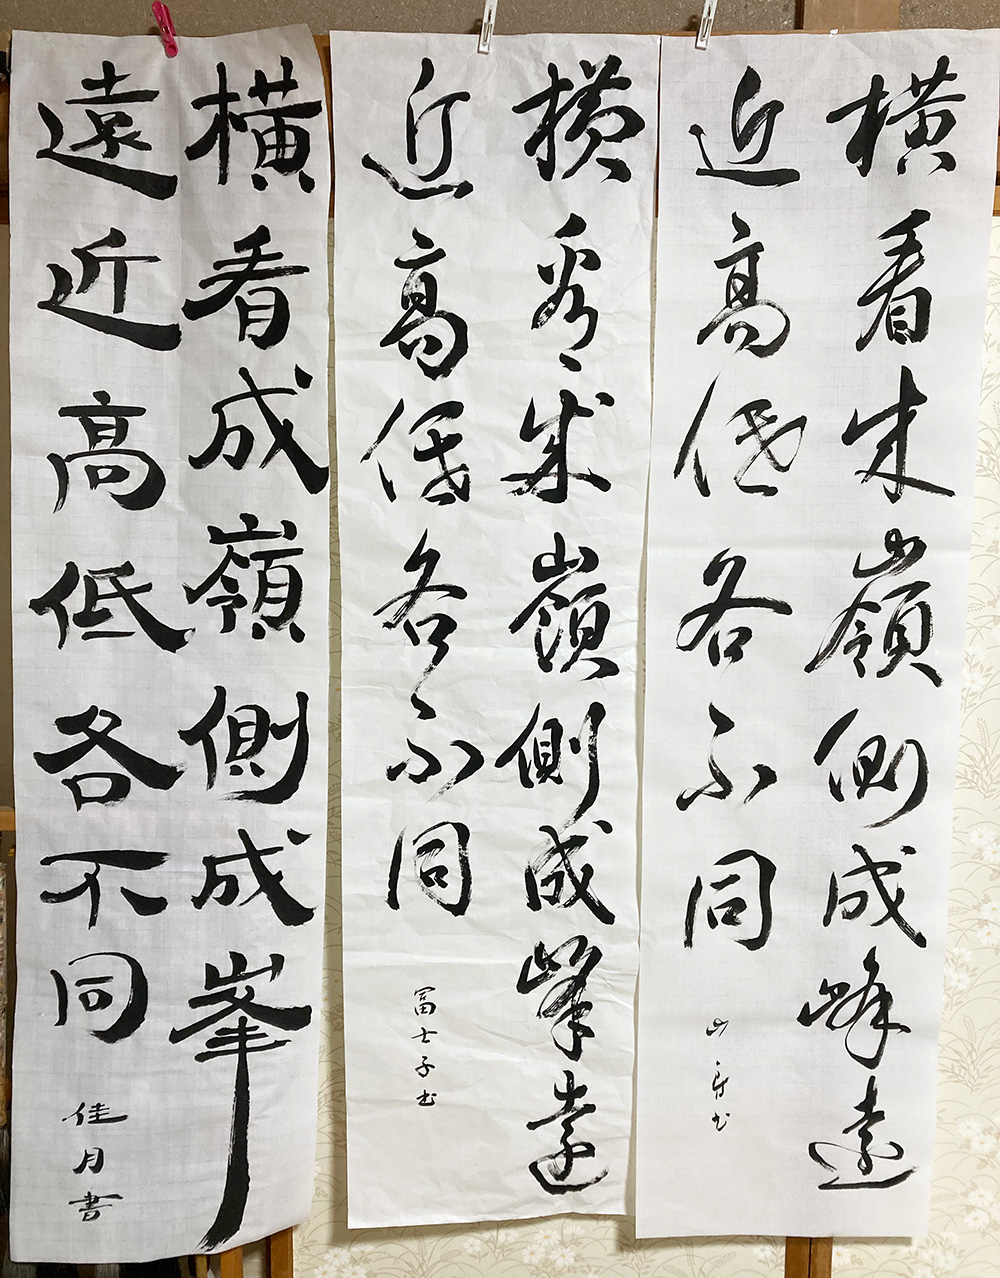 横看成嶺側成峰遠
近高低各不同
山 書
横看成嶺側成峰遠
近高低各不同
冨士子書
横看成嶺側成峯
遠近高低各不同
佳月書